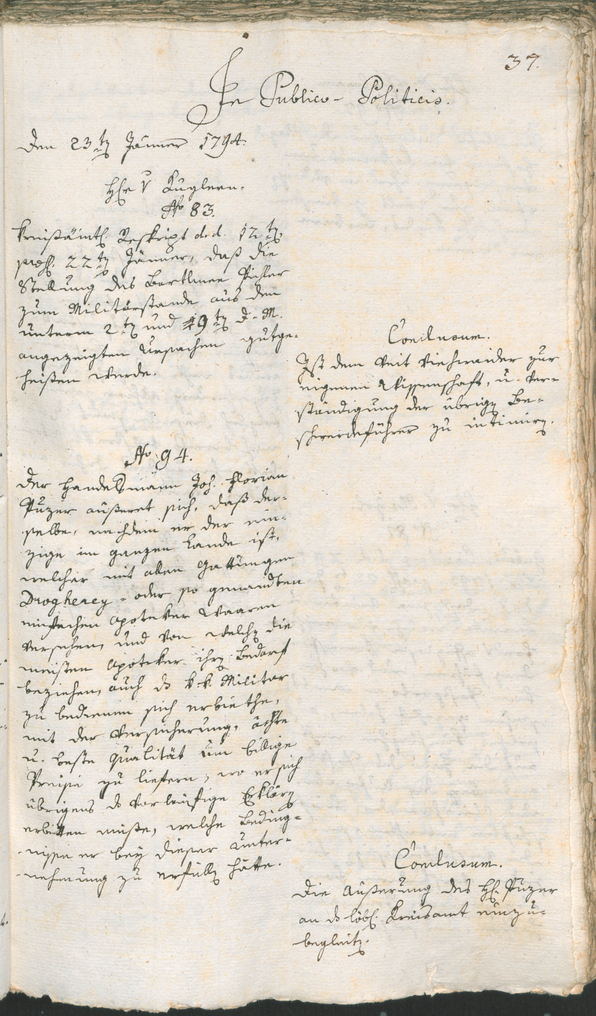 37.
In Publico-Politicis.
Den 23ten Jänner 1794.
H̄r v Kugleren.
No 83.
Kreisämtl. Reskript ddo. 12ten
præs. 22ten Jänner, daß die
Stellung des Bartlmee Pichler
zum Militärstande aus den
unterm 2ten und 19ten d. M.
angezeigten Ursachen gutge-
heißen werde.
Conclusum.
Ist dem Veit Viehweider zur
eigenen Wissenschaft, u. Ver-
ständigung der übrigen Be-
schwerdeführer zu intimirn.
No. 94.
Der Handelsmann Joh. Florian
Puzer äußeret sich, daß der-
selbe, nachdem er der ein-
zige im ganzen Lande ist,
welcher mit allen Gattungen
Drogherey- oder so genannten
einfachen Apoteker Waaren
versehen, und von welchen die
meisten Apoteker ihren Bedarf
beziehen, auch das k. k. Militar
zu bedienen sich erbiethe,
mit der Versicherung, ächte
u. beste Qualität um billige
Preise zu liefern, wo er sich
übrigens die vorläufige Erklärung
erbitten müße, welche Beding-
nißen er bey dieser Unter-
nehmung zu erfüllen hätte.
Conclusum.
Die Äußerung des H. Puzer
an das löbl. Kreisamt einzu-
begleiten.